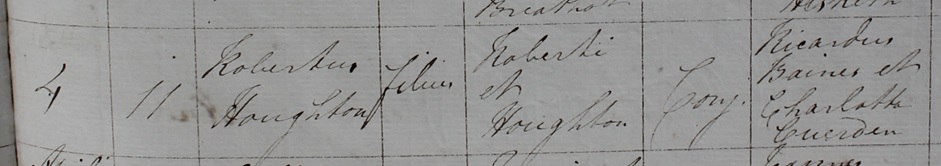 4 11 Robertus Houghton filius Roberti et Houghton Conj. Ricardus Baines et Charlotta Cuerden